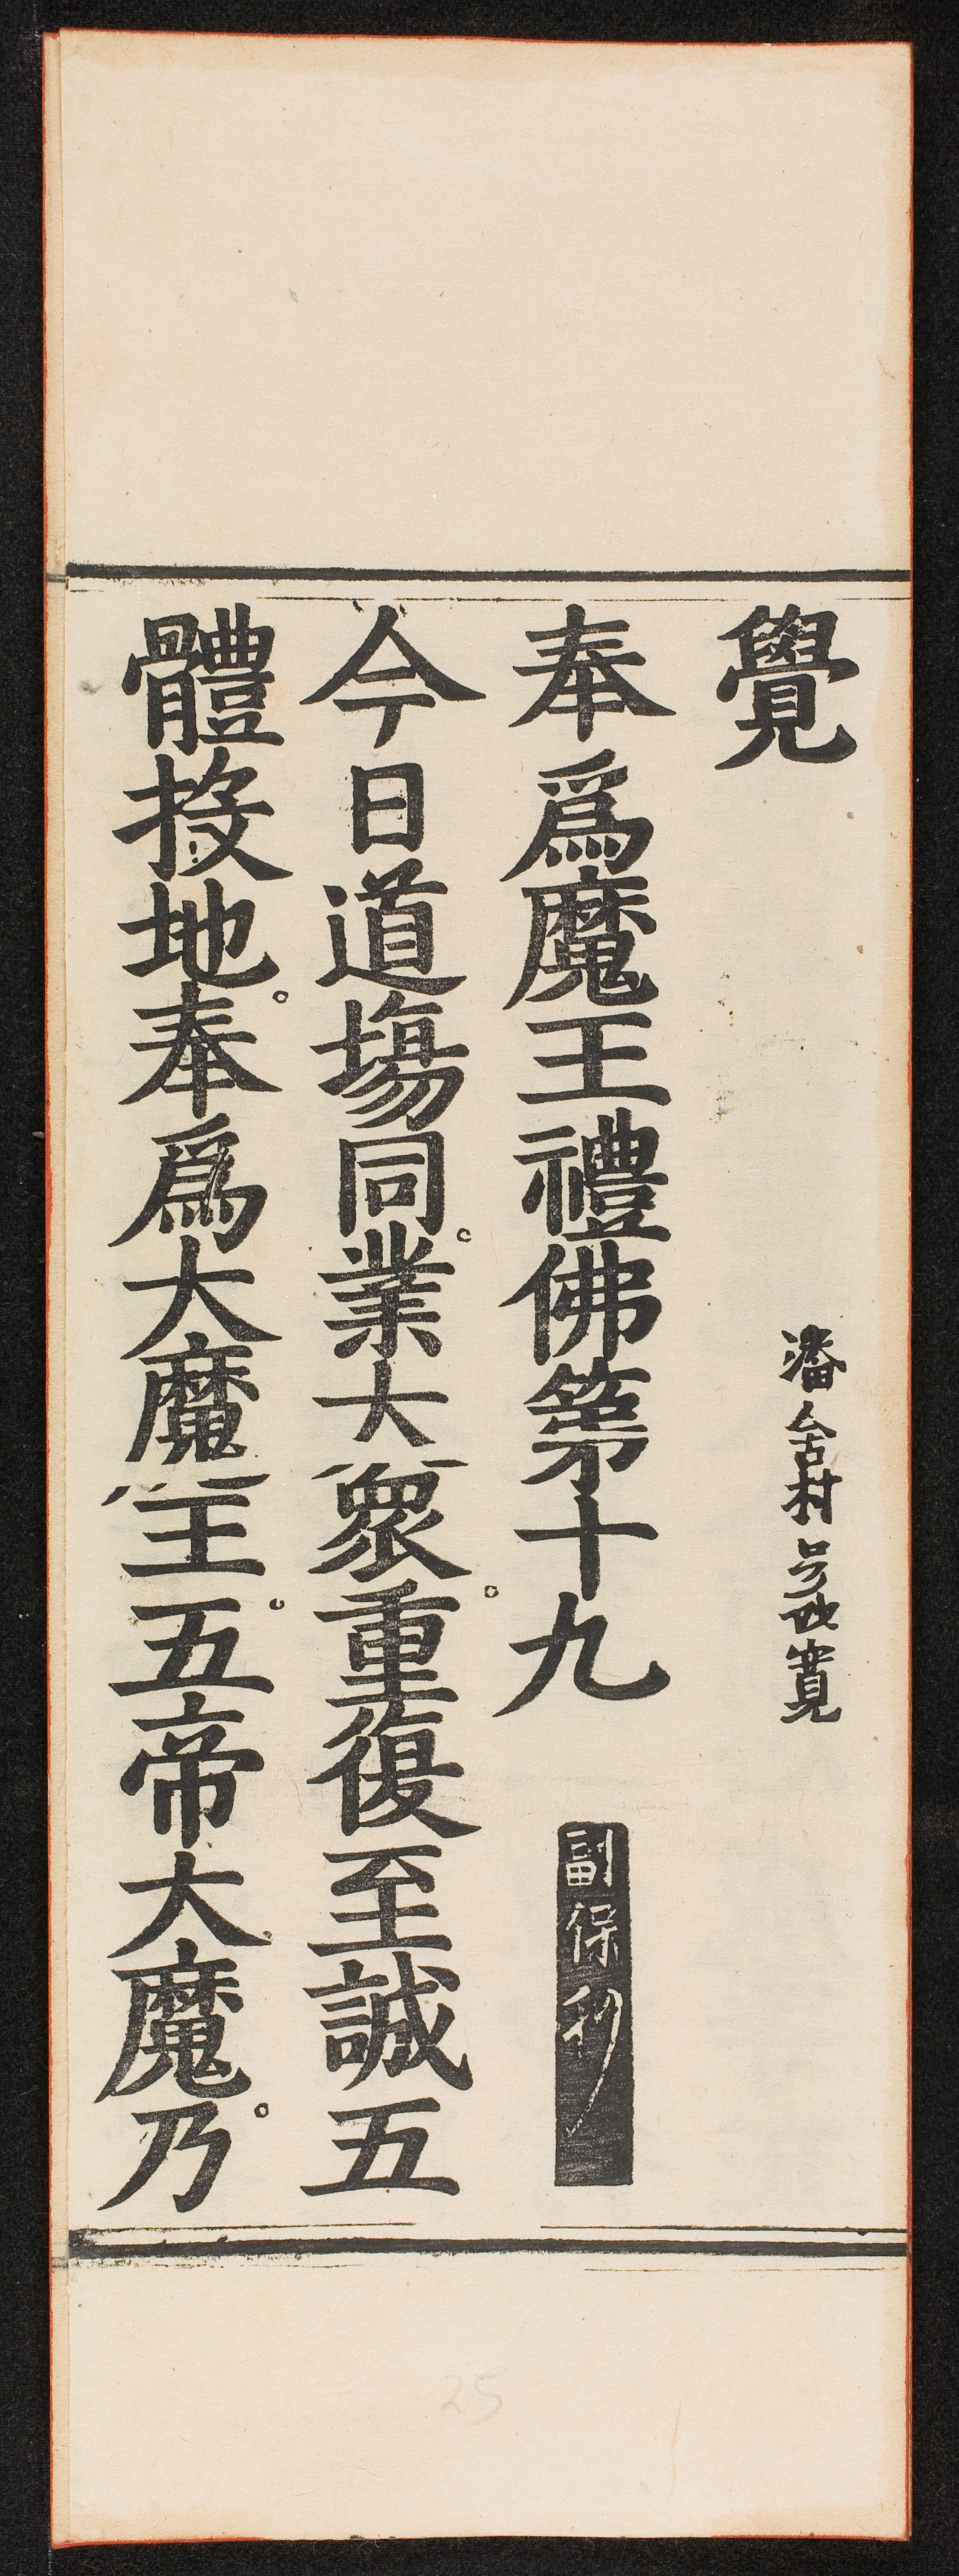 覺
潘舍村
奉爲魔王禮佛第十九
副保
今日道場同。業大衆。重復至誠五
體投地。奉爲大魔王。五帝大魔。乃
25